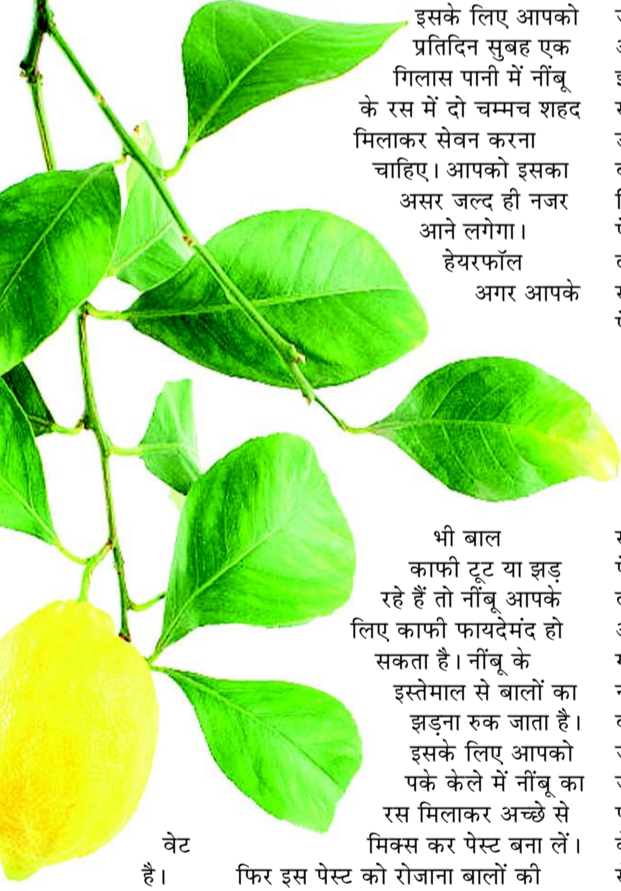 इसके लिए आपको
प्रतिदिन सुबह एक
गिलास पानी में नींबू
के रस में दो चम्मच शहद
मिलाकर सेवन करना
चाहिए। आपको इसका
असर जल्द ही नजर
आने लगेगा।
हेयरफॉल
अगर आपके
भी बाल
काफी टूट या झड़
रहे हैं तो नींबू आपके
लिए काफी फायदेमंद हो
सकता है। नींबू के
इस्तेमाल से बालों का
झड़ना रुक जाता है।
इसके लिए आपको
पके केले में नींबू का
रस मिलाकर अच्छे से
वेट
मिक्स कर पेस्ट बना लें।
है।
फिर इस पेस्ट को रोजाना बालों की